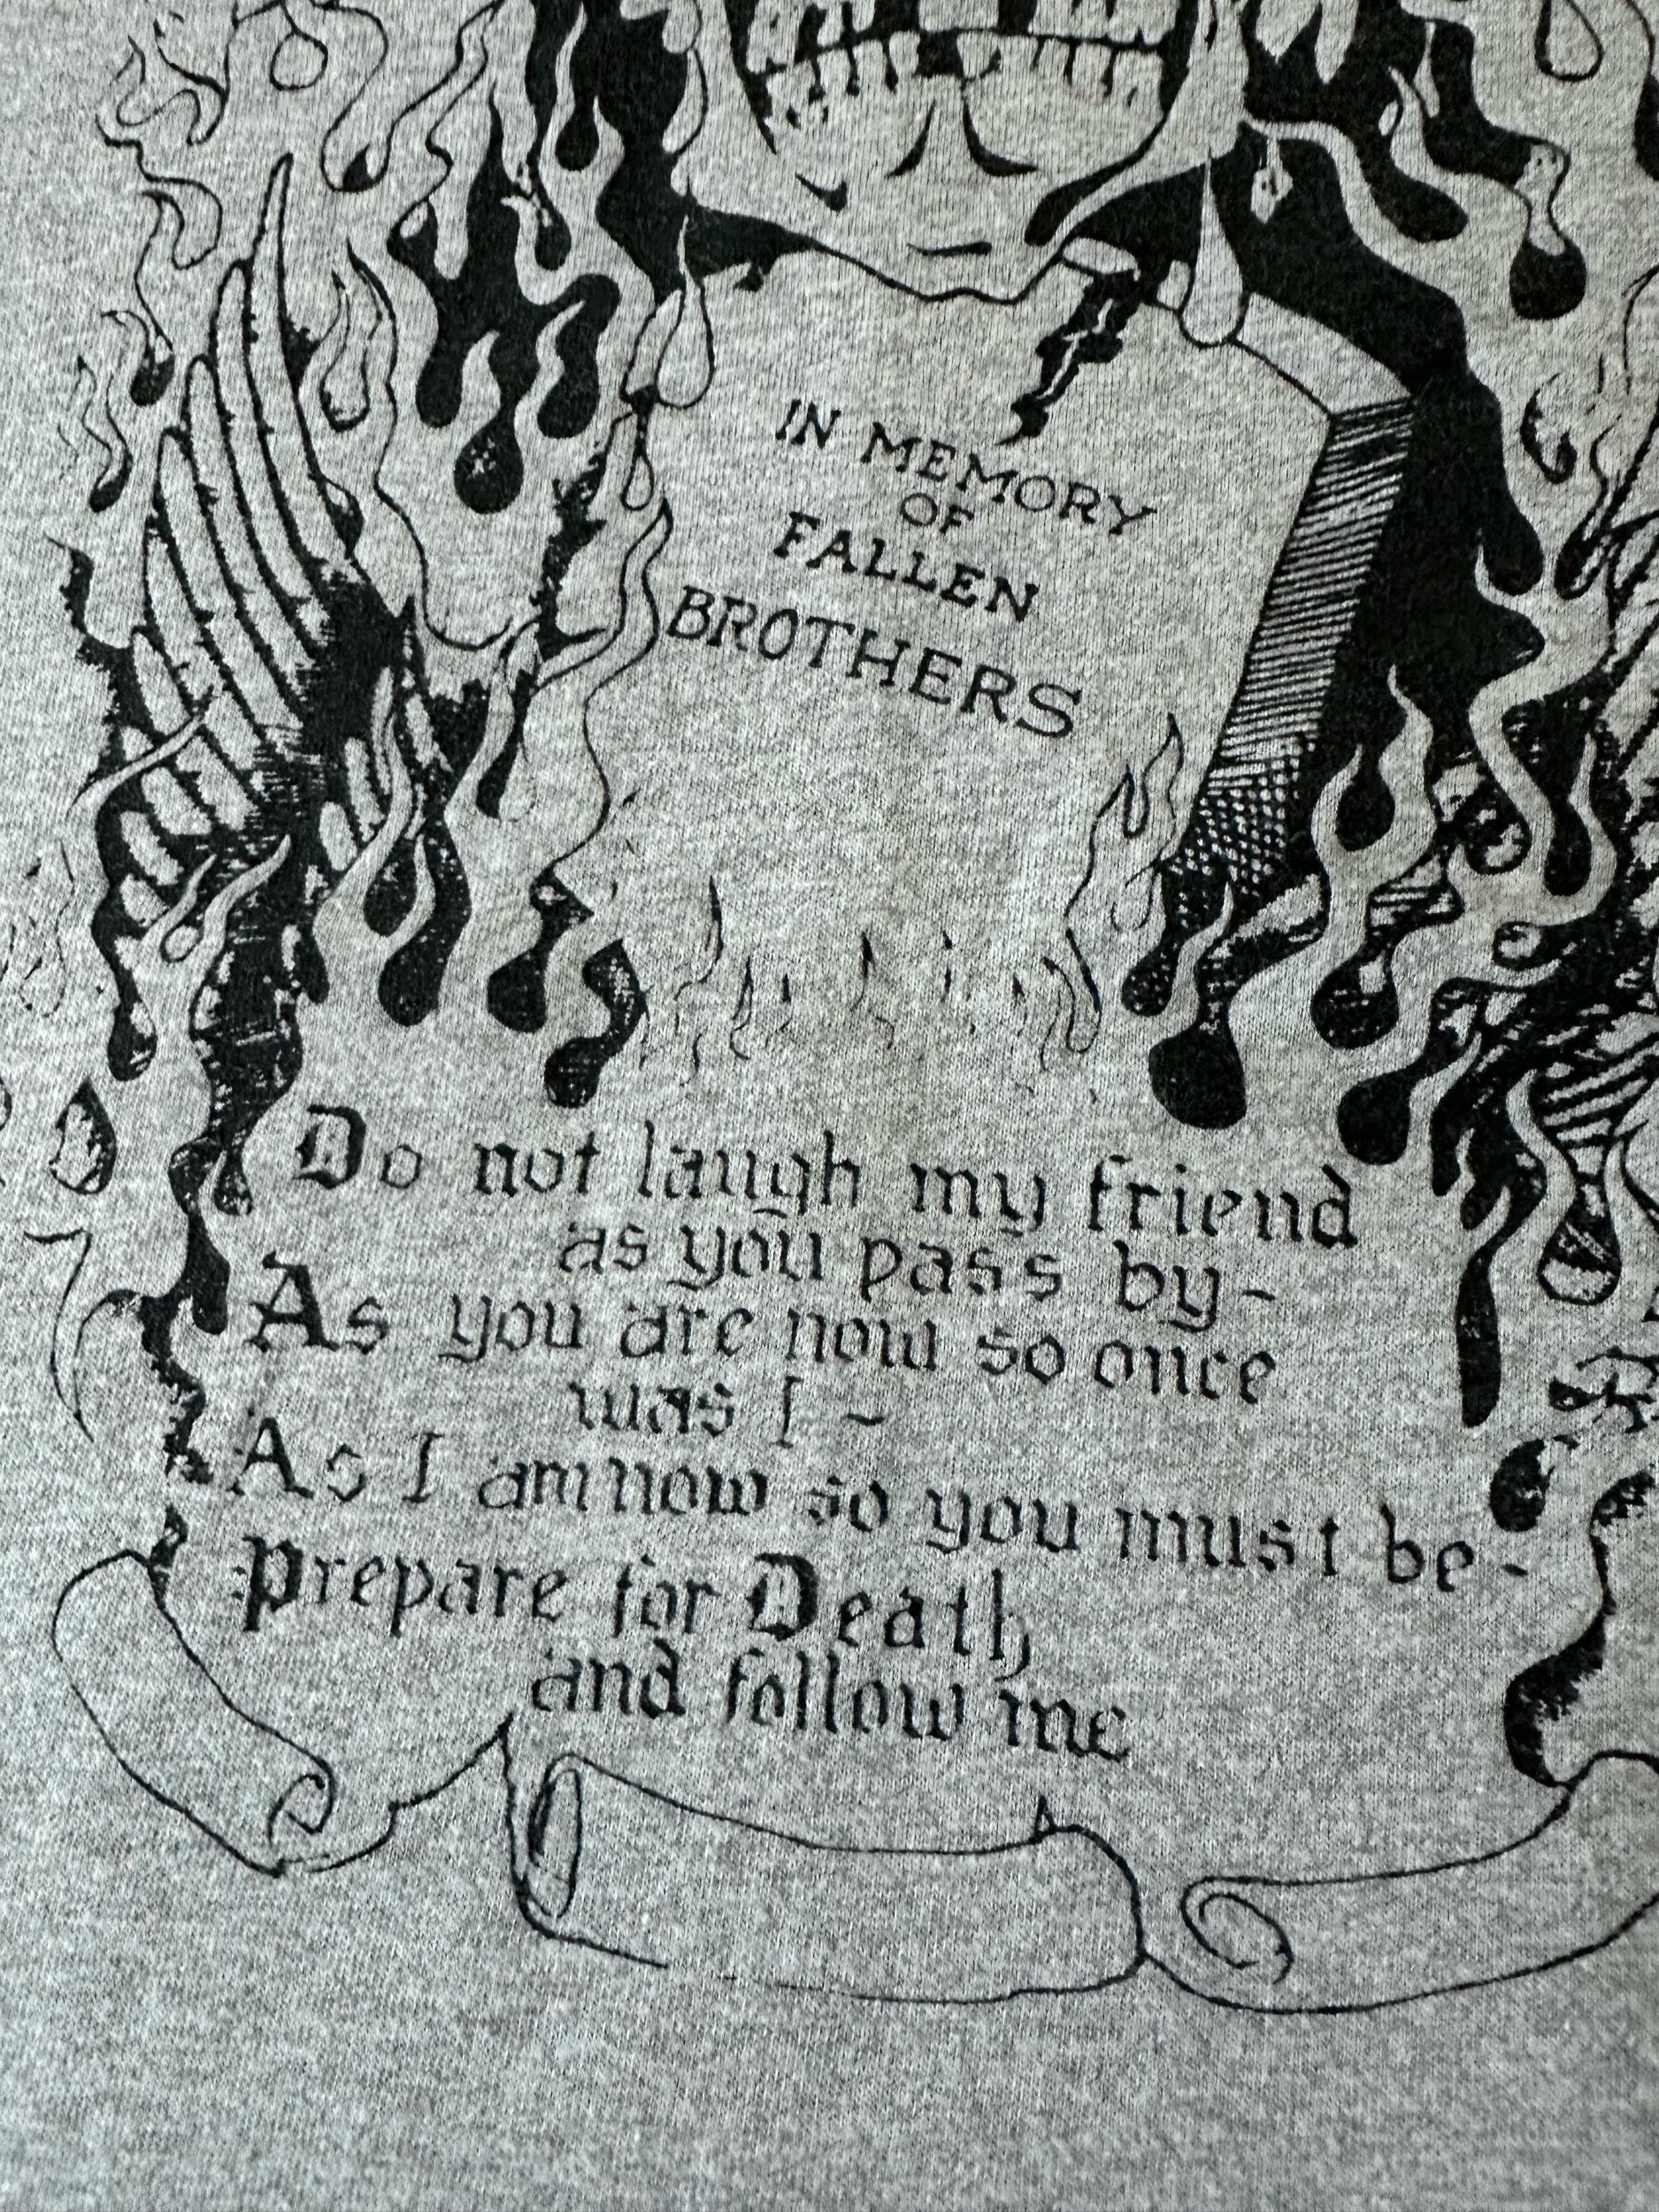 IN MEMORY
OF
FALLEN
BROTHERS
Do not laugh my friend
as you pass by-
As you are now so once
was I -
As I am now so you must be-
Prepare for Death,
and follow me